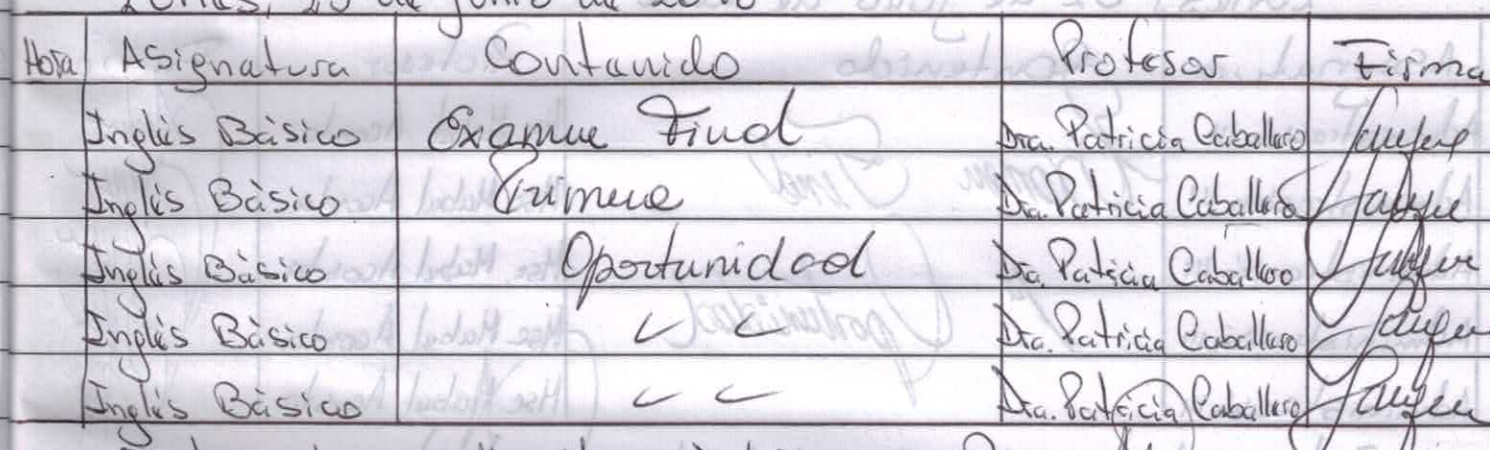 Hora Asignatura Contenido Profesor Firma
Inglés Básico Examen Final Dra. Patricia Caballero
Inglés Básico Primera Dra. Patricia Caballero
Inglés Básico Oportunidad Dra. Patricia Caballero
Inglés Básico " " Dra. Patricia Caballero
Inglés Básico " " Dra. Patricia Caballero